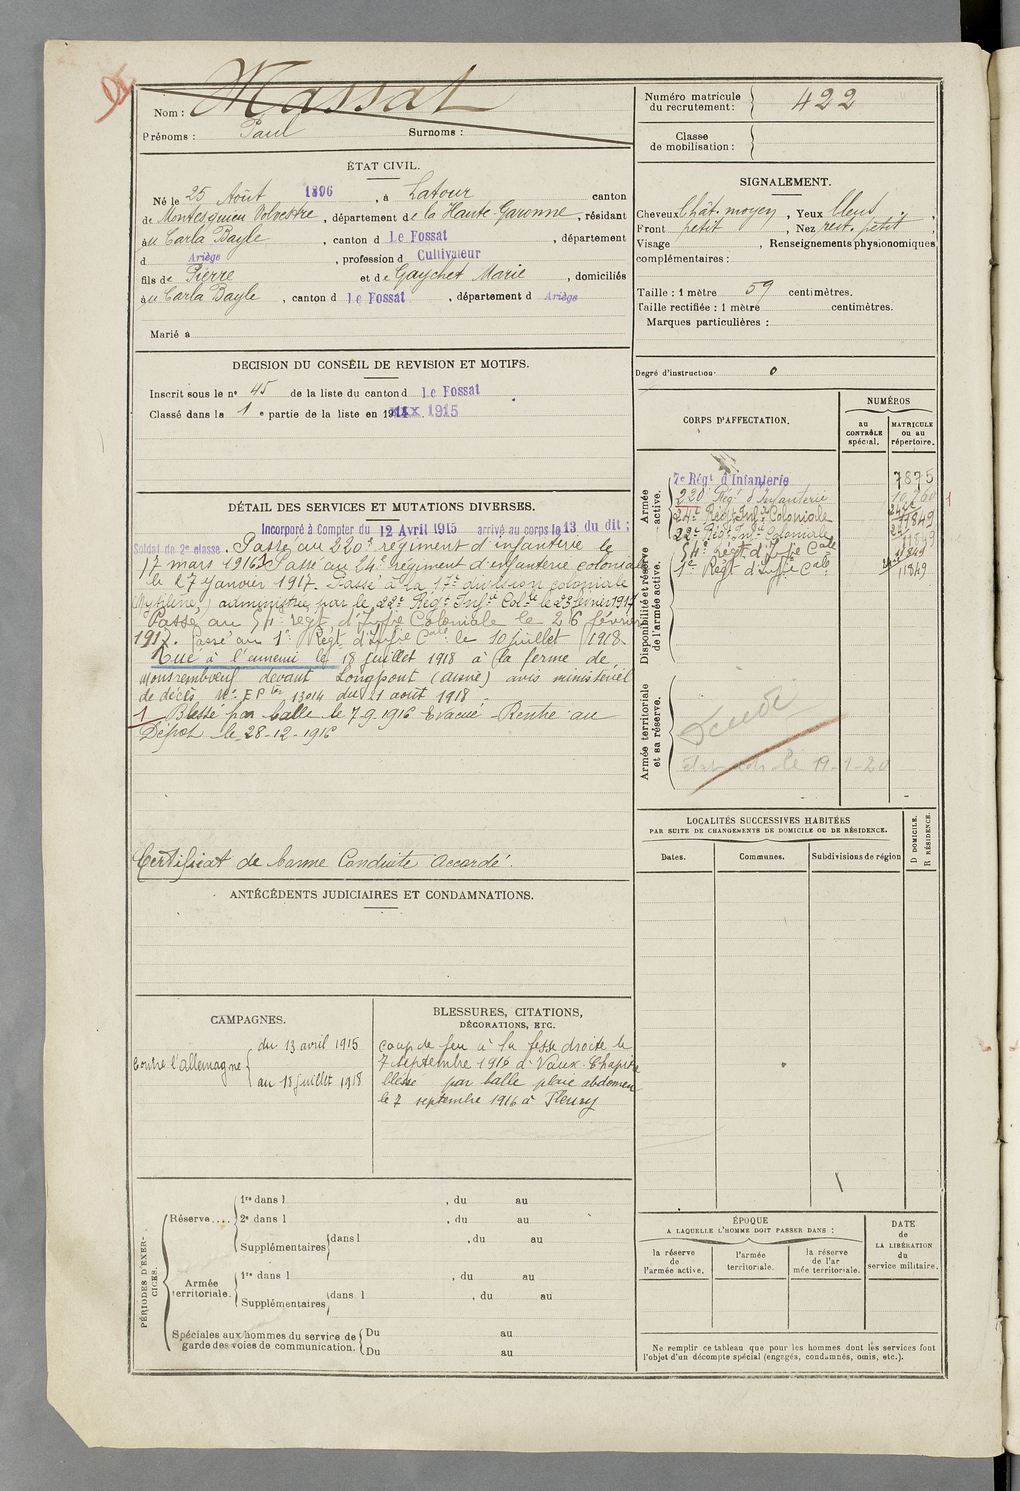 Nom : Massat
Prénoms : Paul Surnoms :
Numéro matricule du recrutement : 422
Classe de mobilisation :
ÉTAT CIVIL.
Né le 25 Août 1896, à Latour canton
de Montesquieu Volvestre, département de la Haute Garonne, résidant
au Carla Bayle, canton d Le Fossat, département
d Ariège, profession d Cultivateur
fils de Pierre et de Gaychet Marie, domiciliés
au Carla Bayle, canton d Le Fossat, département d Ariège
Marié à
SIGNALEMENT.
Cheveux Chât. moyen, Yeux bleus,
Front petit, Nez rect. petit,
Visage , Renseignements physionomiques
complémentaires :
Taille : 1 mètre 59 centimètres.
Taille rectifiée : 1 mètre centimètres.
Marques particulières :
Degré d'instruction 0
DECISION DU CONSEIL DE REVISION ET MOTIFS.
Inscrit sous le n° 45 de la liste du canton d Le Fossat
Classé dans la 1e partie de la liste en 1915
DÉTAIL DES SERVICES ET MUTATIONS DIVERSES.
Incorporé à Compter du 12 Avril 1915 arrivé au corps le 13 du dit ;
Soldat de 2e classe. Passé au 220e régiment d'infanterie le
17 mars 1916. Passé au 24e régiment d'infanterie coloniale
le 27 janvier 1917. Passé à la 17e division coloniale
(Mytilène) administrée par le 22e Régt Inf. Col.le le 23 février 1917
Passé au 54e régt d'Inftie Coloniale le 26 février
1917. Passé au 1er Régt d'Inftie Cale le 10 juillet 1918.
Tué à l'ennemi le 18 juillet 1918 à la ferme de
Monsremboeuf devant Longpont (aisne) avis ministériel
de décès N° EP 13014 du 21 août 1918
1 Blessé par balle le 7-9-1916 Evacué Rentré au
Dépôt le 28-12-1916
Certificat de bonne Conduite Accordé.
CORPS D'AFFECTATION.
NUMÉROS
au CONTRÔLE spécial.
MATRICULE ou au répertoire.
Armée active.
7e Régt d'Infanterie 7875
220e Régt d'Infanterie 10,760
24e Régt Inf. Coloniale 19849
22e Régt Inf. Coloniale 11849
54e régt d'Inftie Cale 11849
1er Régt d'Inftie Cale 11849
Disponibilité et réserve de l'armée active.
Armée territoriale et sa réserve.
le 19-1-20
LOCALITÉS SUCCESSIVES HABITÉES
PAR SUITE DE CHANGEMENTS DE DOMICILE OU DE RÉSIDENCE.
Dates. Communes. Subdivisions de région
D DOMICILE.
R RÉSIDENCE.
ANTÉCÉDENTS JUDICIAIRES ET CONDAMNATIONS.
CAMPAGNES.
Contre l'allemagne
du 13 avril 1915
au 18 juillet 1918
BLESSURES, CITATIONS,
DÉCORATIONS, ETC.
Coup de feu à la fesse droite le
7 septembre 1916 à Vaux-Chapitre
blessé par balle plaie abdomen
le 7 septembre 1916 à Fleury
PÉRIODES D'EXERCICES.
Réserve....
1re dans l , du au
2e dans l , du au
Supplémentaires dans l , du au
Armée territoriale.
1re dans l , du au
Supplémentaires dans l , du au
Spéciales aux hommes du service de
garde des voies de communication.
Du au
Du au
ÉPOQUE
A LAQUELLE L'HOMME DOIT PASSER DANS :
la réserve de l'armée active.
l'armée territoriale.
la réserve de l'armée territoriale.
DATE de LA LIBÉRATION du service militaire.
Ne remplir ce tableau que pour les hommes dont les services font
l'objet d'un décompte spécial (engagés, condamnés, omis, etc.).